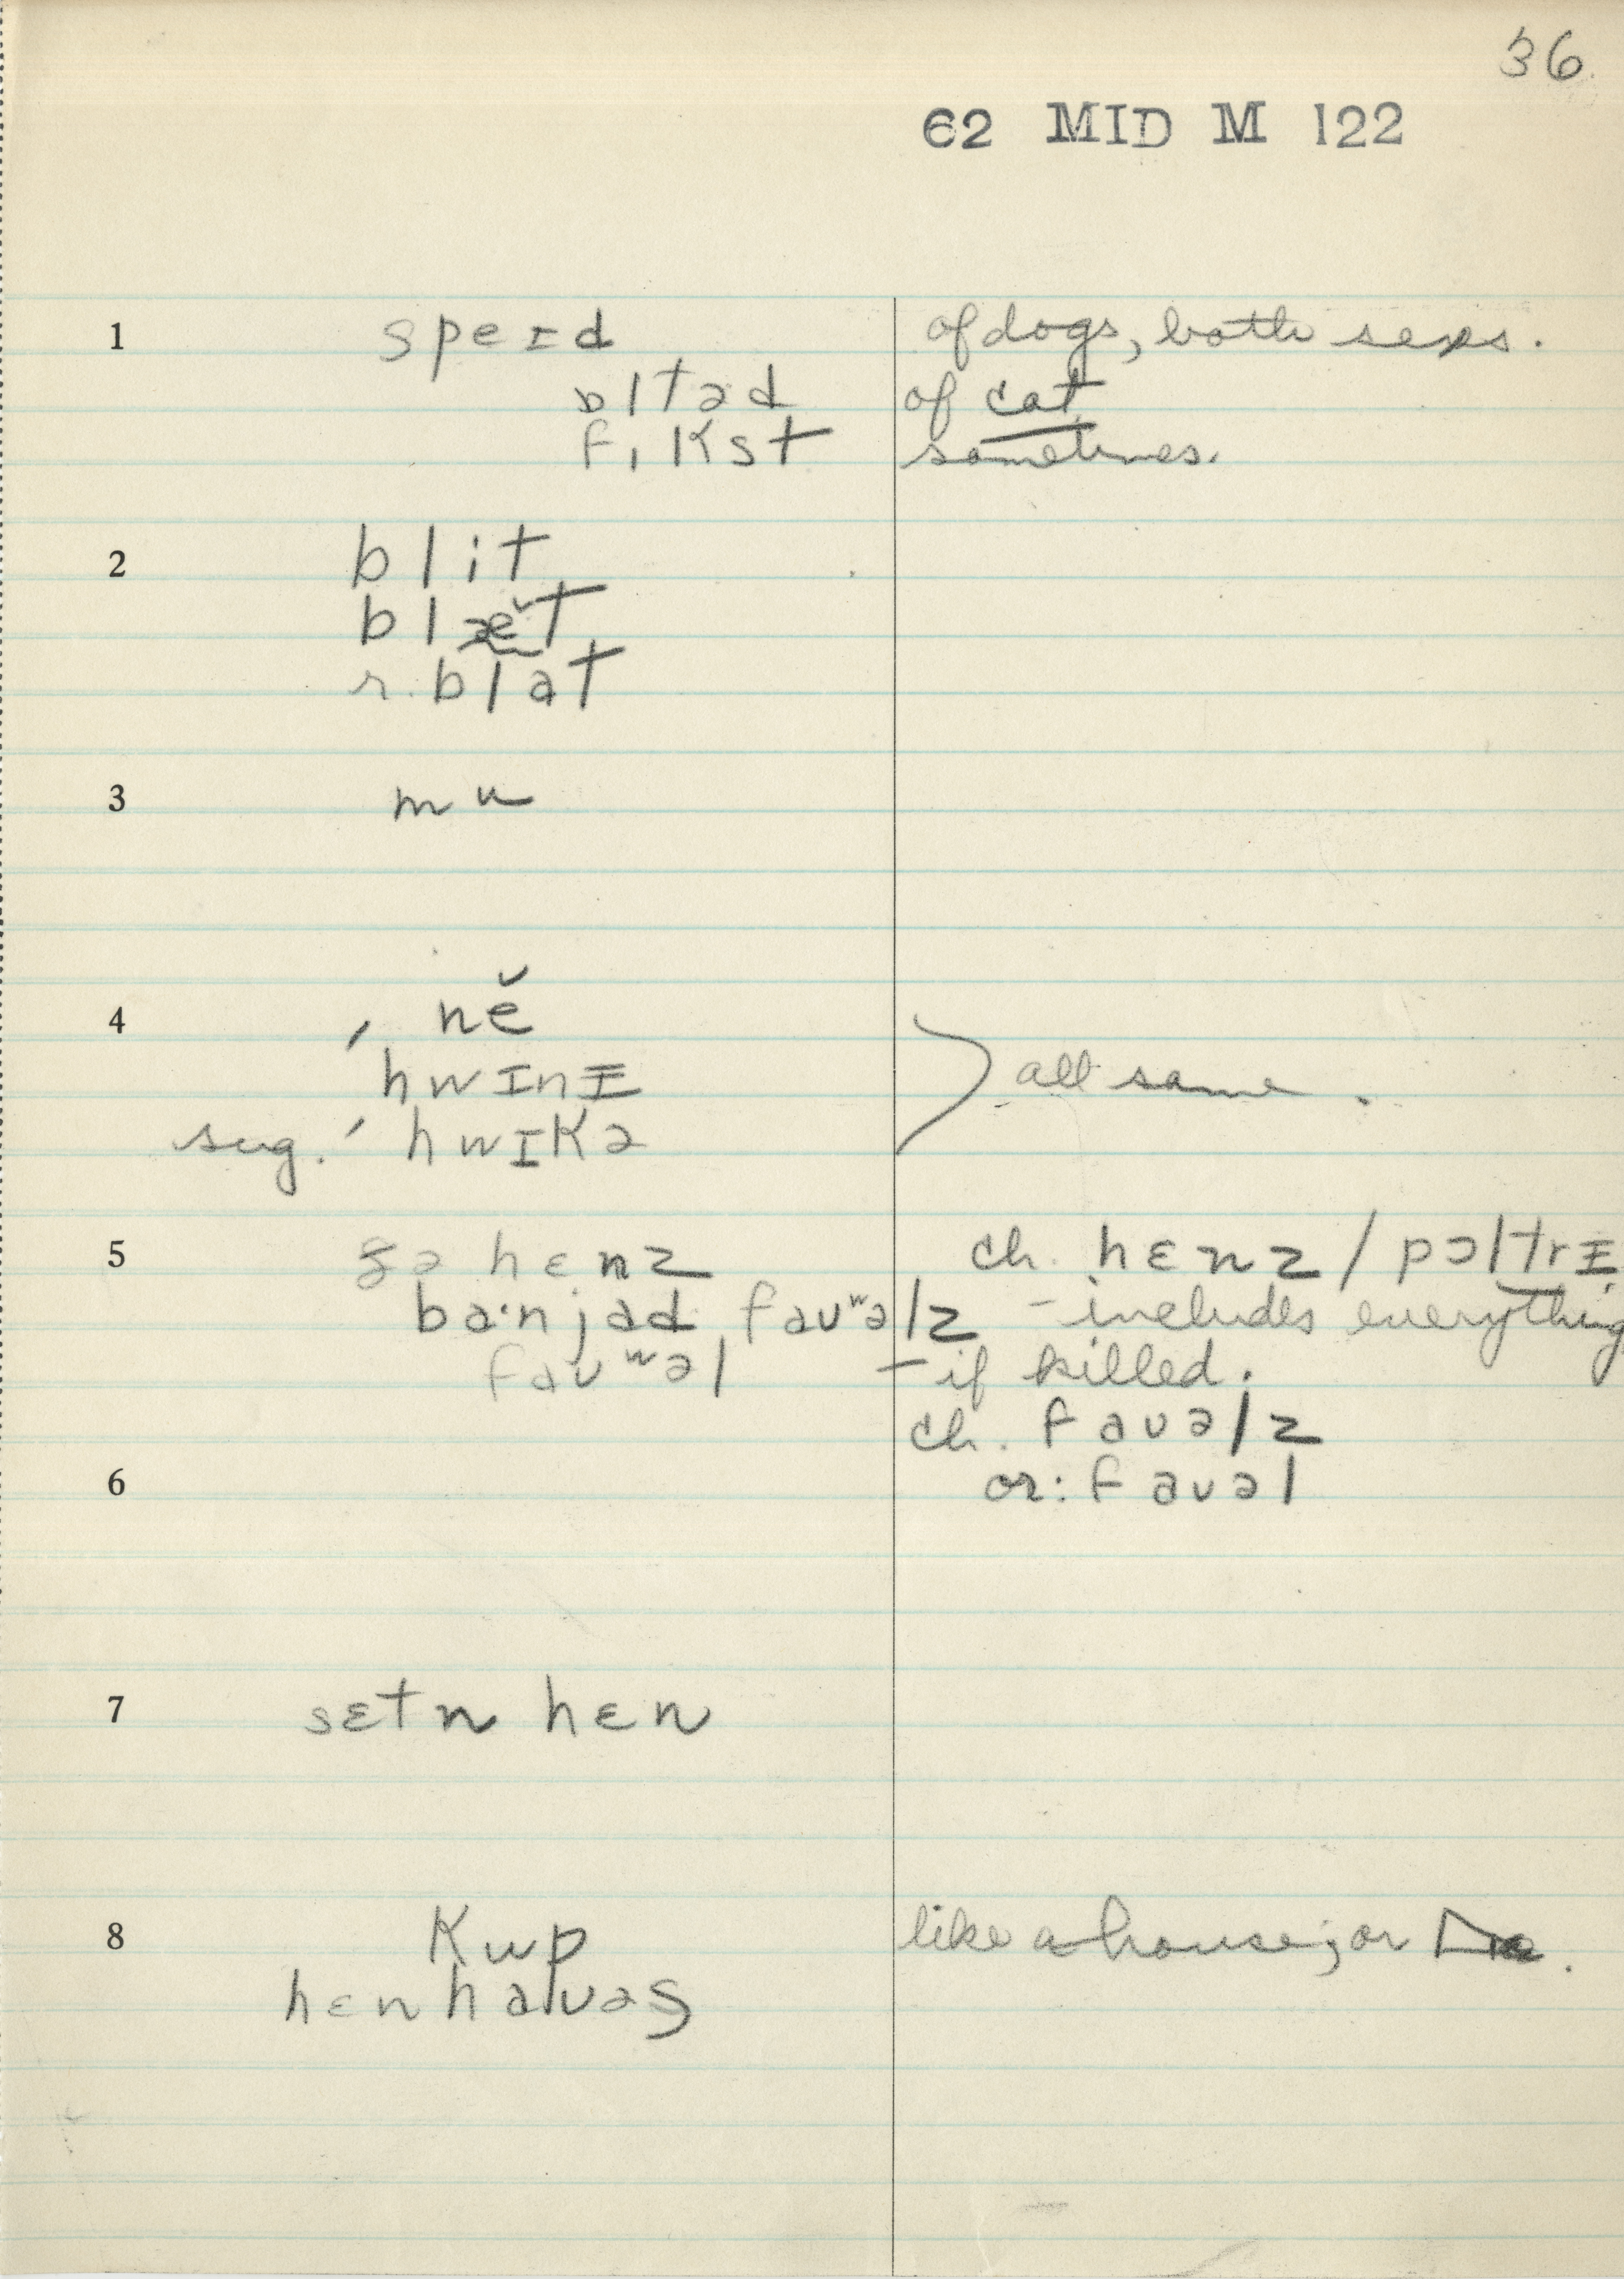 36.
62 MID M 122
1 speɪd of dogs, both sexes.
ɔltəd of cat
fɪkst sometimes.
2 blit
blæ̆t
r. blat
3 mu
4 ˈ nĕ
hwɪnɪ all same.
sug. ˈ hwɪkə
5 hɛnz ch. hɛnz / pɔltrɪ
ba·njad fauʷəlz – includes everything
fauʷəl – if killed.
ch. fauəlz
6 or: fauəl
7 sɛtn hɛn
8 kup like a house; or
hɛn haus